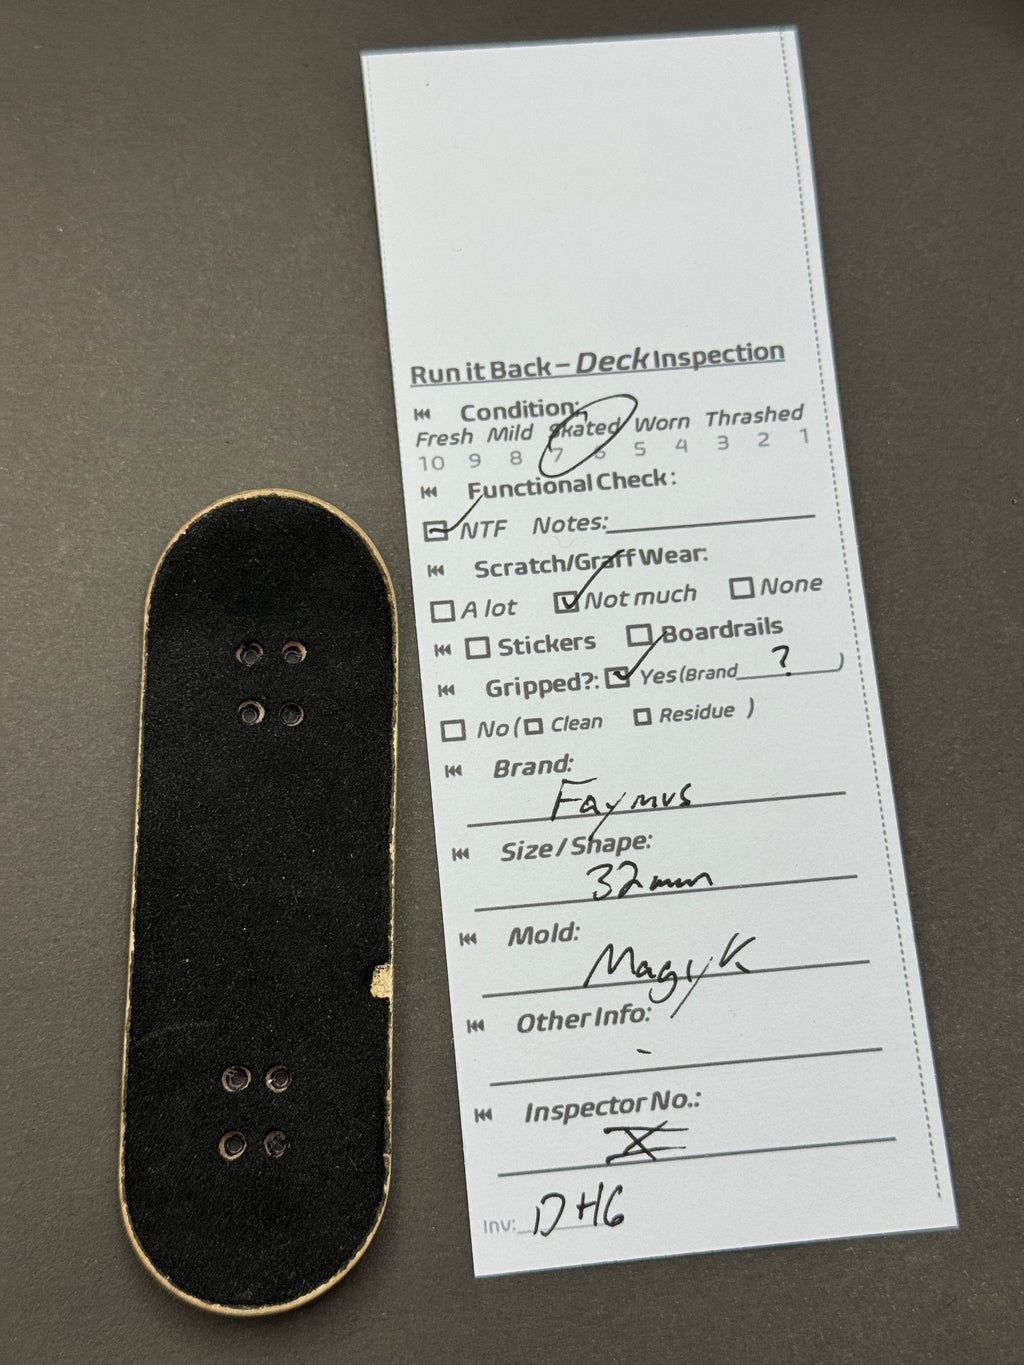 Run it Back – Deck Inspection
Condition:
Fresh Mild Skated Worn Thrashed
10 9 8 7 6 5 4 3 2 1
Functional Check:
NTF Notes:
Scratch/Graff Wear:
A lot Not much None
Stickers Boardrails
Gripped?: Yes (Brand ? )
No ( Clean Residue )
Brand:
Faymus
Size / Shape:
32mm
Mold:
Magyk
Other Info:
-
Inspector No.:
Inv: DH6